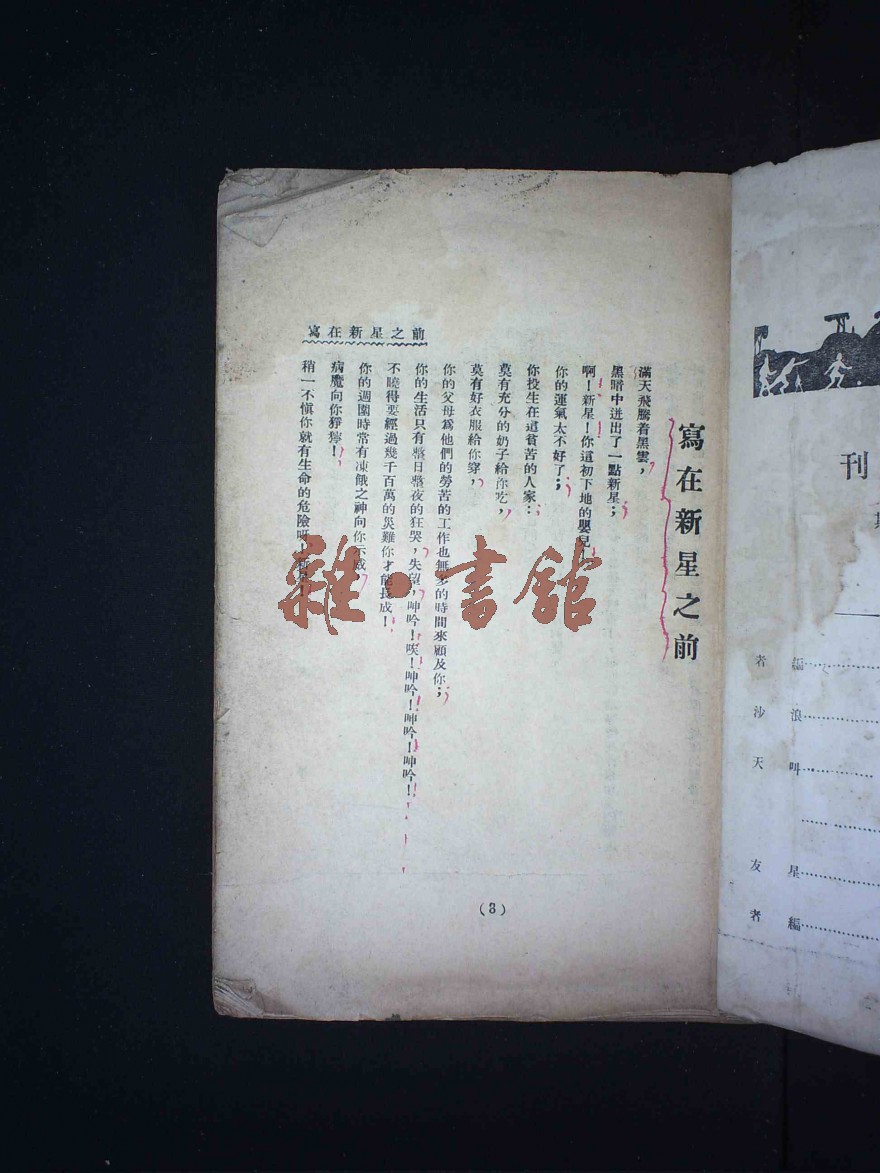 寫在新星之前
滿天飛騰着黑雲，
黑暗中迸出了一點新星；
啊！新星！你這初下地的嬰兒！
你的運氣太不好了；
你投生在這貧苦的人家：
莫有充分的奶子給你吃，
莫有好衣服給你穿，
你的父母爲他們的勞苦的工作也無多的時間來顧及你；
你的生活只有整日整夜的狂哭，失望，呻吟！唉！呻吟！呻吟！呻吟！
不曉得要經過幾千百萬的災難你才能長成！
你的週圍時常有凍餓之神向你示威，
病魔向你猙獰！
稍一不愼你就有生命的危險呀！
寫在新星之前
(3)
雜·書館
刊
編
者
浪
沙
叫
天
星
友
編
者